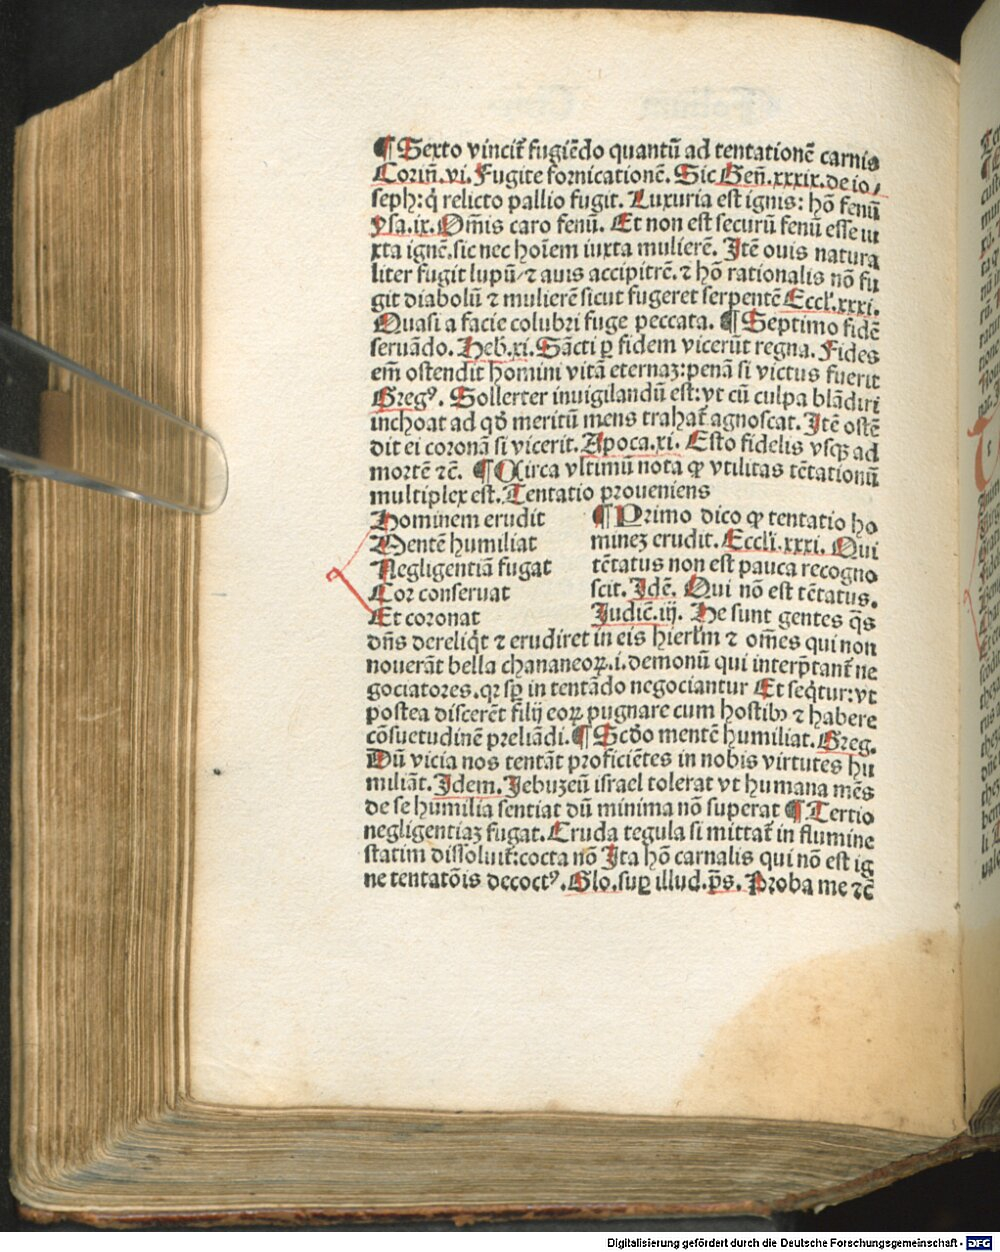 ¶ Sexto vincit᷑ fugiēdo quantū ad tentationē carnis
Corin̄.vi. Fugite fornicationē. Sic Gen̄.xxxix. de io/
seph: q̄ relicto pallio fugit. Luxuria est ignis: hō fenū
ysa.ix. Om̄is caro fenū. Et non est securū fenū esse iu
xta ignē. sic nec hoīem iuxta mulierē. Itē ouis natura
liter fugit lupū/ ⁊ auis accipitrē. ⁊ hō rationalis nō fu
git diabolū ⁊ mulierē sicut fugeret serpentē Eccl̓.xxxi.
Quasi a facie colubri fuge peccata. ¶ Septimo fidē
seruādo. Heb.xi. Sācti ꝑ fidem vicerūt regna. Fides
em̄ ostendit homini vitā eternaꝫ: penā si victus fuerit
Gregꝰ. Sollerter inuigilandū est: vt cū culpa blādiri
inchoat ad qđ meritū mens trahat᷑ agnoscat. Itē ostē
dit ei coronā si vicerit. Apoca.xi. Esto fidelis vsqꝫ ad
mortē ⁊c̄. ¶ Circa vltimū nota ꝙ vtilitas tētationū
multiplex est. Tentatio proueniens
Hominem erudit
Mentē humiliat
Negligentiā fugat
Cor conseruat
Et coronat
¶ Primo dico ꝙ tentatio ho
mineꝫ erudit. Eccli.xxxi. Qui
tētatus non est pauca recogno
scit. Idē. Qui nō est tētatus.
Iudic̄.iij. He sunt gentes q̄s
dn̄s dereliq̄t ⁊ erudiret in eis hierl̓m ⁊ om̄es qui non
nouerāt bella chananeoꝝ.i. demonū qui interp̄tant᷑ ne
gociatores. qꝛ sꝑ in tentādo negociantur Et seq̄tur: vt
postea discerēt filij eoꝝ pugnare cum hostibꝫ ⁊ habere
cōsuetudinē preliādi. ¶ Scđo mentē humiliat. Greg.
Dū vicia nos tentāt proficiētes in nobis virtutes hu
miliāt. Idem. Jebuzeū israel tolerat vt humana mēs
de se humilia sentiat dū minima nō superat ¶ Tertio
negligentiaꝫ fugat. Cruda tegula si mittat᷑ in flumine
statim dissoluit᷑: cocta nō Ita hō carnalis qui nō est ig
ne tentatōis decoctꝰ. Glo. suꝑ illud. p̄s. Proba me ⁊c̄
Digitalisierung gefördert durch die Deutsche Forschungsgemeinschaft - DFG